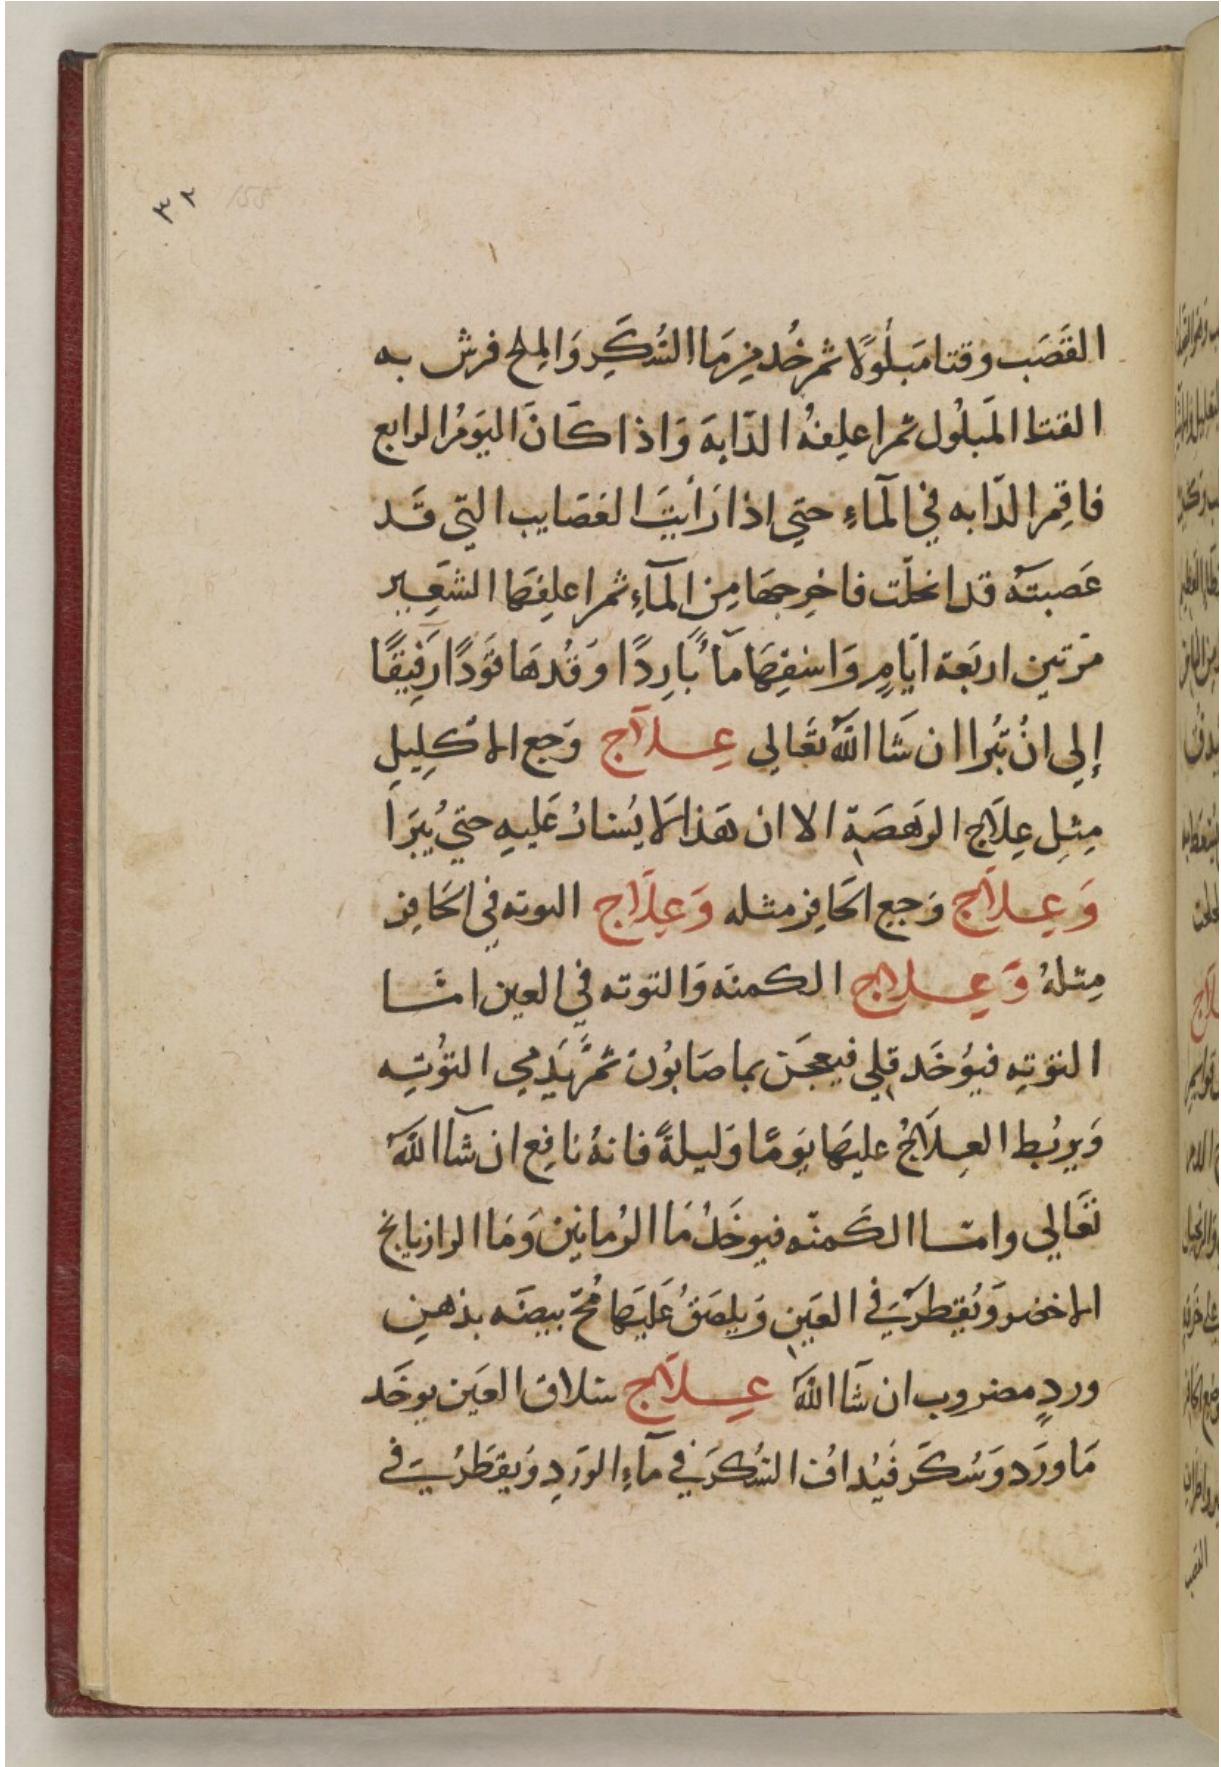 ٣٢ 155
القَصَب وقتا مَبلُولًا ثم خُد مِن مَا السُّكَّرِ وَالمِلح فرش به
القتا المَبلُول ثمرا علِفهُ الدّابهَ وَاذا كَانَ اليَومُ الرابع
فاقِم الدّابه في المآءِ حتي اذا رَأيتَ العَصَايب التي قَد
عَصبتَهُ قد انحلّت فاخرِجهَا مِنَ المآءِ ثمراعلِفهَا الشَعِير
مَرتين اربَعة ايَامٍ وَاسقِهَا مآءً بَارِدًا وَقُدهَا قَودًا رَفيقًا
إلي انُ تبُرا ان شَا اللّهُ تعَالي عِلَاج وَجع الاكلِيلِ
مِثلِ عِلَاج الرَهصَةِ الا ان هَذا لَا يُسَارُ عَليهِ حتي يُبَرَا
وَعِلَاج وَجيع الحَافِر مثله وَعِلَاج التوته في الحَافِر
مِثلهُ وَعِلاج الكمنَه وَالتوته في العين امَّا
التوتهِ فيؤخَد قِلي فيعجَن بما صَابُون ثمَّ يَدمي التوُتِه
وَيربُط العِلَاجُ عليهَا يَومًا وَليلةً فانهُ نافِع ان شآ اللّهُ
تعَالي وامّا الكَمنّه فيوخَدُ مَا الرُمانين وَمَا الرازيانج
الاخضر وَيُقطر في العَينِ وَيلصَقُ عَليهَا مُحّ بيضَه بذهنِ
وردٍ مضروب ان شَآ اللّهُ عِلَاج سلاق العَين يوخَد
مَا وَرَد وَسُكَّر فَيُداف السُّكرَ في مآءِ الوَردِ وَيقطَرُ في